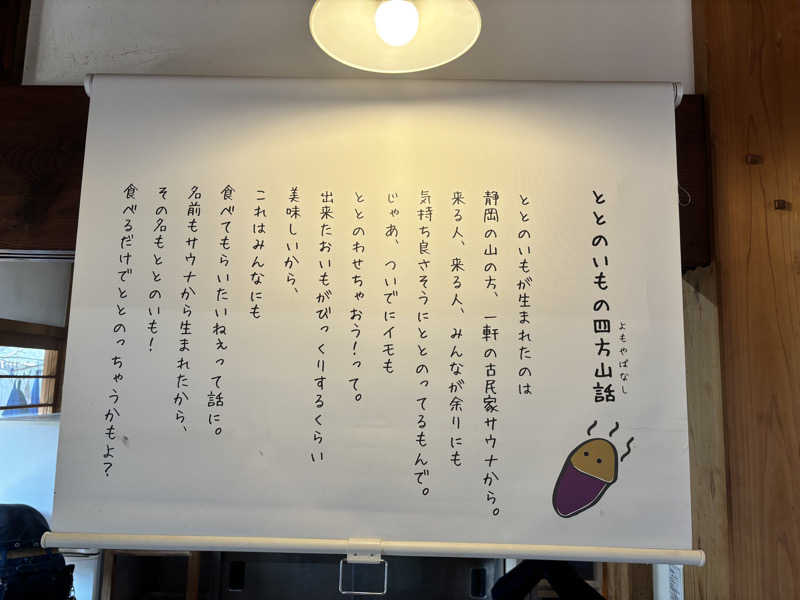 ととのいもの四方山話
よもやばなし
ととのいもが生まれたのは
静岡の山の方、一軒の古民家サウナから。
来る人、来る人、みんなが余りにも
気持ち良さそうにととのってるもんで。
じゃあ、ついでにイモも
ととのわせちゃおう!って。
出来たおいもがびっくりするくらい
美味しいから、
これはみんなにも
食べてもらいたいねぇって話に。
名前もサウナから生まれたから、
その名もととのいも!
食べるだけでととのっちゃうかもよ?